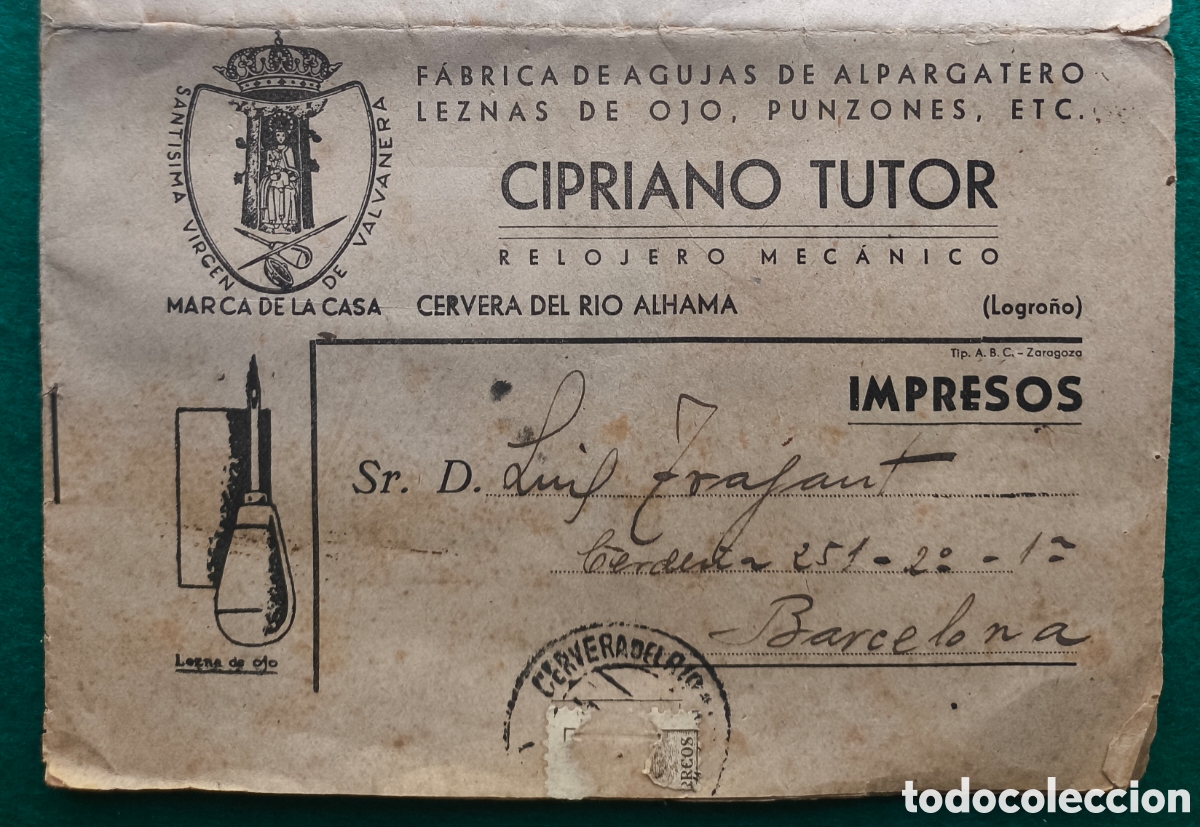 SANTISIMA VIRGEN DE VALVANERA
MARCA DE LA CASA
FÁBRICA DE AGUJAS DE ALPARGATERO
LEZNAS DE OJO, PUNZONES, ETC.
CIPRIANO TUTOR
RELOJERO MECÁNICO
CERVERA DEL RIO ALHAMA (Logroño)
Tip. A. B. C. - Zaragoza
IMPRESOS
Sr. D. Luis Trajant
251 - 2º - 1ª
Barcelona
Lezna de ojo
CERVERA DEL RIO
todocoleccion